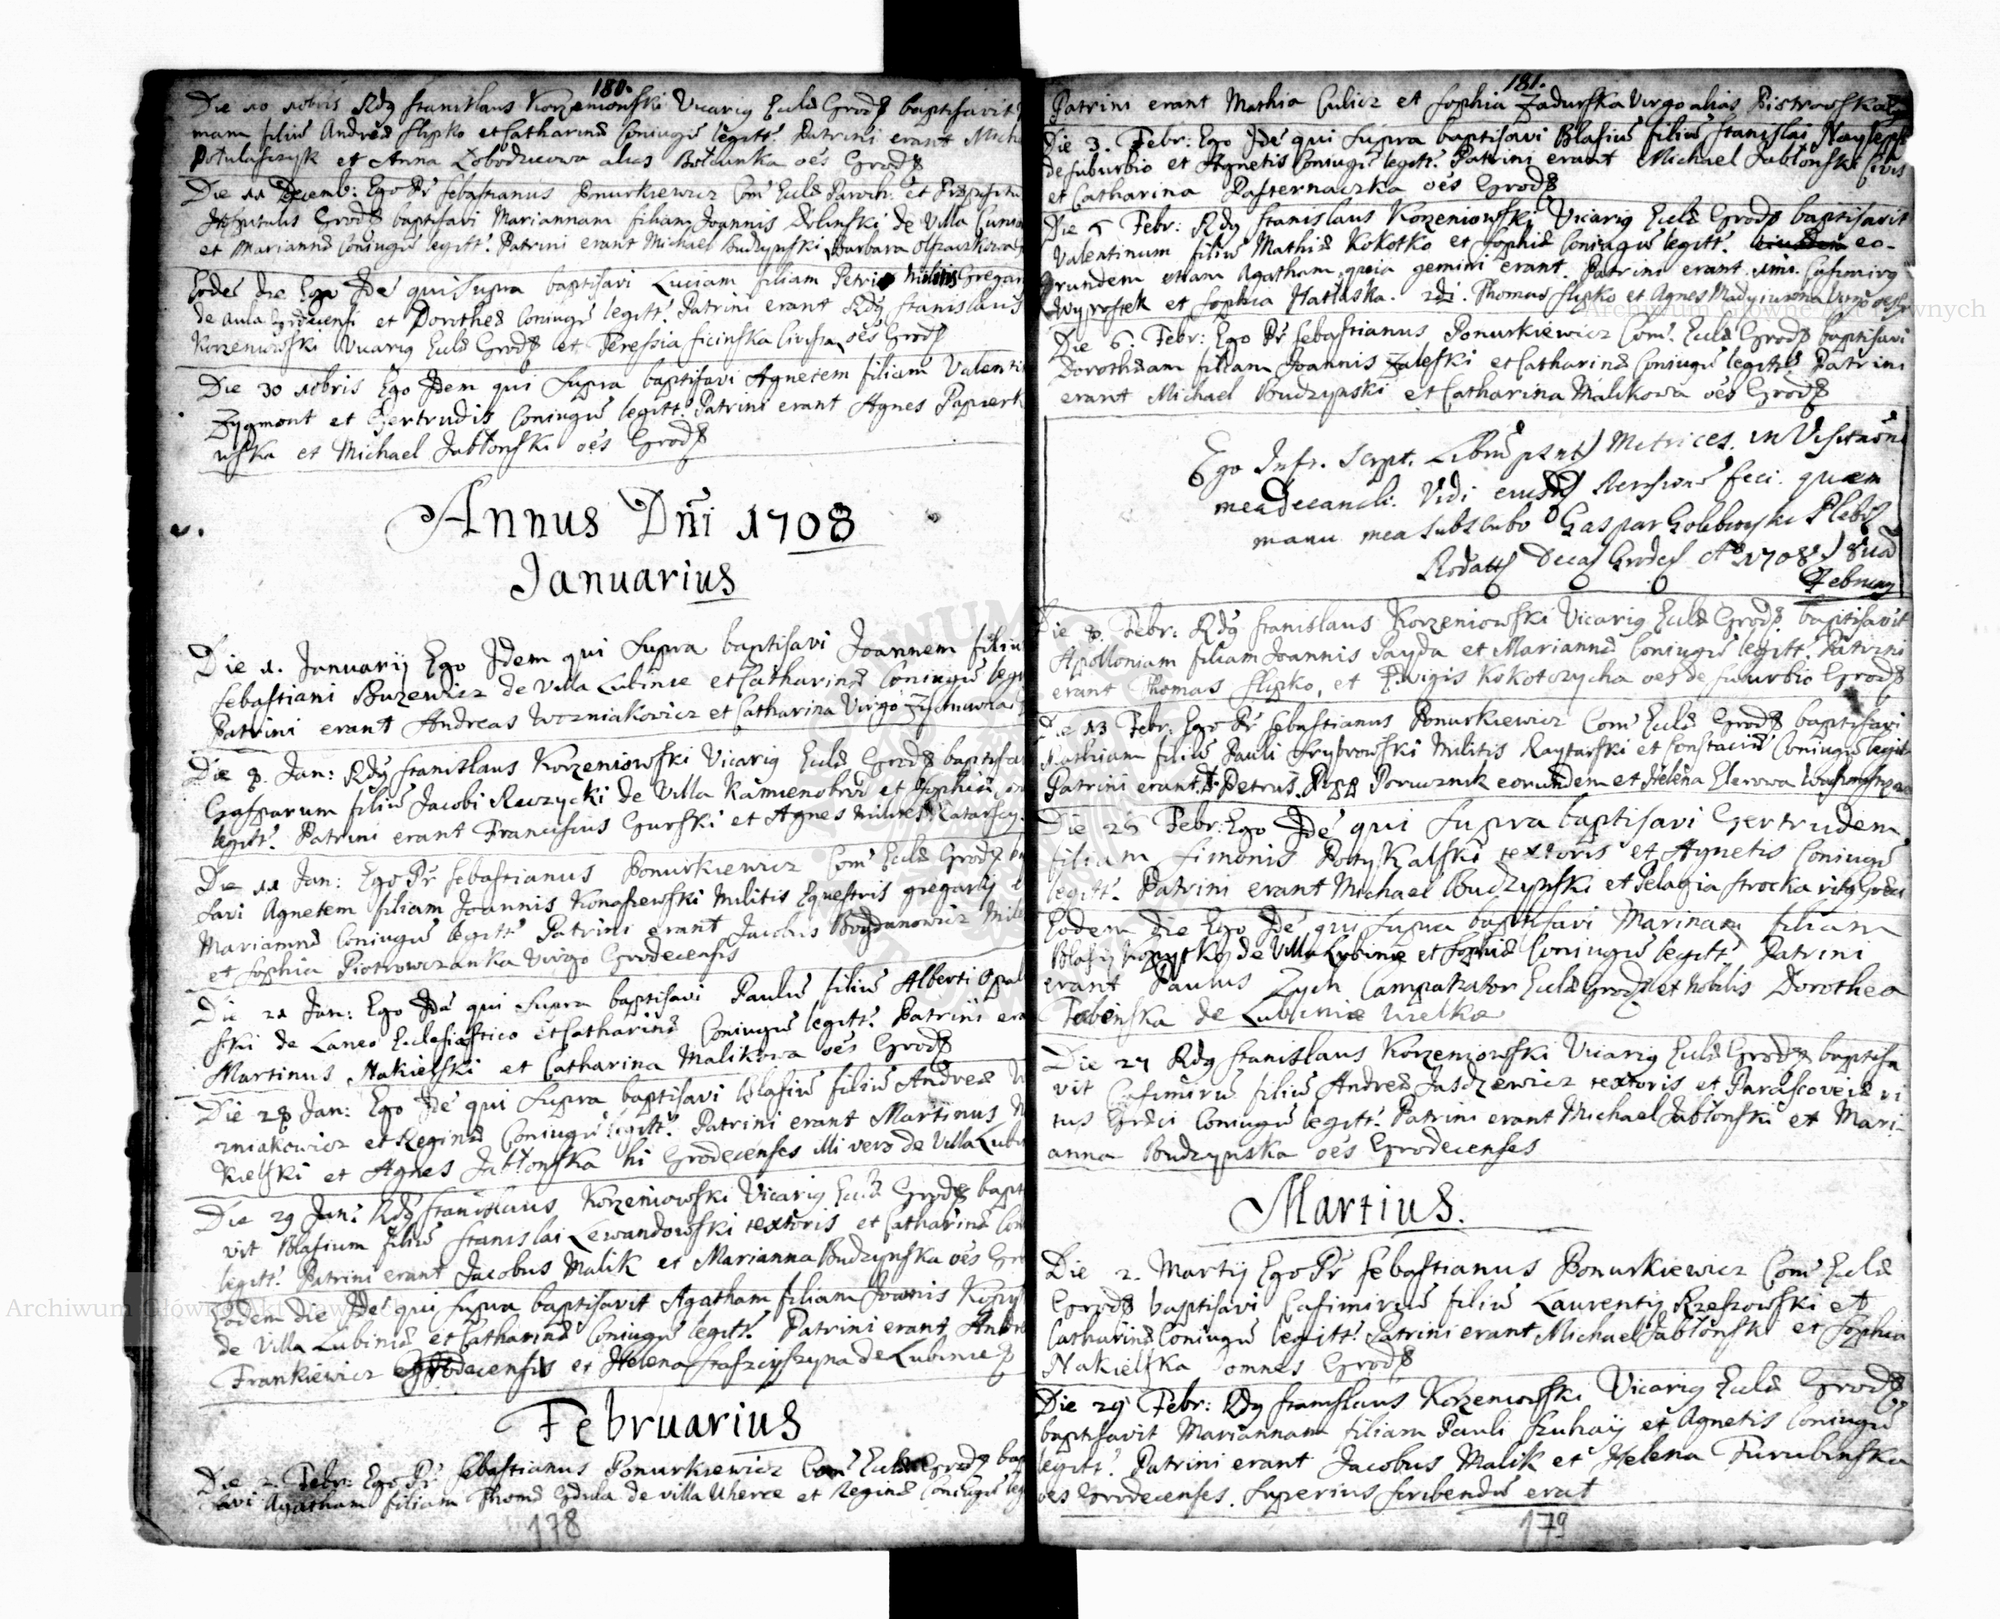 180.
Die 10 10bris Rdg Stanislaus Korzeniowski Vicarig Eccls Grod baptisavit
mam filiu Andreæ Slipko et Catharinæ Coniugu legitt: Patrini erant Micha
Potulaszczyk et Anna Łobodzicowa alias oēs Grod
Die 11 Decemb: Ego Pr Sebastianus Ponurkiewicz Com Eccl Paroch: et Præposit
Hospitalis Grod baptisavi Mariannam filiam Joannis Dolinski de Villa
et Mariannæ Coniugu legitt: Patrini erant Michael Budzynski Barbara
Eodē die Ego Idē qui supra baptisavi Luciam filiam Petri Militis Gregar
de Aula et Dorotheæ Coniugu legitt: Patrini erant Rdg Stanislaus
Korzeniowski Vicarig Eccls Grod et Teressia Ficinska oēs Grod
Die 30 10bris Ego Idem qui supra baptisavi Agnetem filiam Valenti
Zygmont et Gertrudis Coniugu legitt: Patrini erant Agnes Papierk
nska et Michael Jabłonski oēs Grod
Annus Dni 1708
Januarius
Die 1. Januarij Ego Idem qui supra baptisavi Joannem filiu
Sebastiani Buzewicz de Villa Lubinie et Catharinæ Coniugu legi
Patrini erant Andreas Wozniakovicz et Catharina Virgo
Die 8. Jan: Rdg Stanislaus Korzeniowski Vicarig Eccls Grod baptisa
Gasparum filiu Jacobi Ruczycki de Villa Kamienobrod et Sophiæ
legitt: Patrini erant Franciscus Gurski et Agnes
Die 11 Jan: Ego Pr Sebastianus Ponurkiewicz Com Eccls Grod b
savi Agnetem filiam Joannis Konaszewski Militis Equestris gregarij e
Mariannæ Coniugu legitt: Patrini erant Jacobus Bogdanowicz Mile
et Sophia Piotrowczanka Virgo Grodecensis
Die 21 Jan: Ego Idē qui supra baptisavi Paulu filiu Alberti Opal
ski de Laneo Ecclesiastico et Catharinæ Coniugu legitt: Patrini era
Martinus Nakielski et Catharina Malikowa oēs Grod
Die 28 Jan: Ego Idē qui supra baptisavi Blasiu filiu Andreæ W
zniakowicz et Reginæ Coniugu legitt: Patrini erant Martinus N
kielski et Agnes Jabłonska hi Grodecenses illi vero de Villa Lubi
Die 29 Jan: Rdg Stanislaus Korzeniowski Vicarig Eccls Grod bapti
vit Blasium filiu Stanislai Lewandowski textoris et Catharinæ Con
legitt: Patrini erant Jacobus Malik et Marianna Budzynska oēs Gro
Eodem die Idē qui supra baptisavit Agatham filiam Joanis Kopy
de Villa Lubiniæ et Catharinæ Coniugu legitt: Patrini erant Andre
Frankiewicz Grodecensis et Helena de Lubinie
Februarius
Die 2. Febr: Ego Pr Sebastianus Ponurkiewicz Com Eccls Grod bap
savi Agatham filiam Thomæ Gdula de villa Uherce et Reginæ Coniugu leg
178
181.
Patrini erant Mathia Culicz et Sophia Zadurska Virgo alias Piotrowska
Die 3. Febr: Ego Idē qui supra baptisavi Blasiu filiu Stanislai
de suburbio et Agnetis Coniugu legitt: Patrini erant Michael Jabłonski Civis
et Catharina Pasternaczka oēs Grod
Die 5 Febr: Rdg Stanislaus Korzeniowski Vicarig Eccls Grod baptisavit
Valentinum filiu Mathiæ Kokotko et Sophiæ Coniugu legitt: eo-
rundem etiam Agatham, quia gemini erant. Patrini erant imi. Casimirg
Wyrostek et Sophia Hatłaska. 2di. Thomas Slipko et Agnes Virgo
Die 6. Febr: Ego Pr Sebastianus Ponurkiewicz Com. Eccls Grod baptisavi
Dorotheam filiam Joannis Zaleski et Catharinæ Coniugu legitt: Patrini
erant Michael Budzynski et Catharina Malikowa oēs Grod
Ego Infr. Script. Libru Metrices in Visitaōni
mea Decanali. Vidi feci. quem
manu mea subscribo Gaspar
Decag Grodeg Ao 1708 8va
February
Die 8. Febr: Rdg Stanislaus Korzeniowski Vicarig Eccls Grod. baptisavit
Apolloniam filiam Joannis Payda et Mariannæ Coniugu legitt. Patrini
erant Thomas Slipko, et Kokotozycha oēs de suburbio Grod
Die 13 Febr: Ego Pr Sebastianus Ponurkiewicz Com Eccls Grod baptisavi
Mathiam filiu Pauli Militis Raytarski et Coniugu legit
Patrini erant Petrus Porucznik eorundem et Helena
Die 25 Febr: Ego Idē qui supra baptisavi Gertrudem
filiam Simonis textoris et Agnetis Coniugu
legitt: Patrini erant Michael Budzynski et Pelagia ritg Græci
Eodem die Ego Idē qui supra baptisavi Marinam filiam
Blasij de Villa Lubinie et Sophiæ Coniugu legitt: Patrini
erant Paulus Zych Campanator Eccls Grod et Nobilis Dorothea
de Lubinie Wielka
Die 27 Rdg Stanislaus Korzeniowski Vicarig Eccls Grod baptisa
vit Casimiru filiu Andreæ Jasdzewicz textoris et Parascoveiæ ri
tus Græci Coniugu legitt: Patrini erant Michael Jabłonski et Mari-
anna Budzynska oēs Grodecenses
Martius.
Die 2. Martij Ego Pr Sebastianus Ponurkiewicz Com Eccls
Grod baptisavi Casimiru filiu Laurentij Rzeszowski et
Catharinæ Coniugu legitt: Patrini erant Michael Jabłonski et Sophia
Nakielska omnes Grod
Die 29 Febr: Rdg Stanislaus Korzeniowski Vicarig Eccls Grod
baptisavit Mariannam filiam Pauli Szuhaij et Agnetis Coniugu
legitt: Patrini erant Jacobus Malik et Helena Furubinska
oēs Grodecenses. Superius scribendu erat
179
Archiwum Główne Akt Dawnych
Archiwum Główne Akt Dawnych